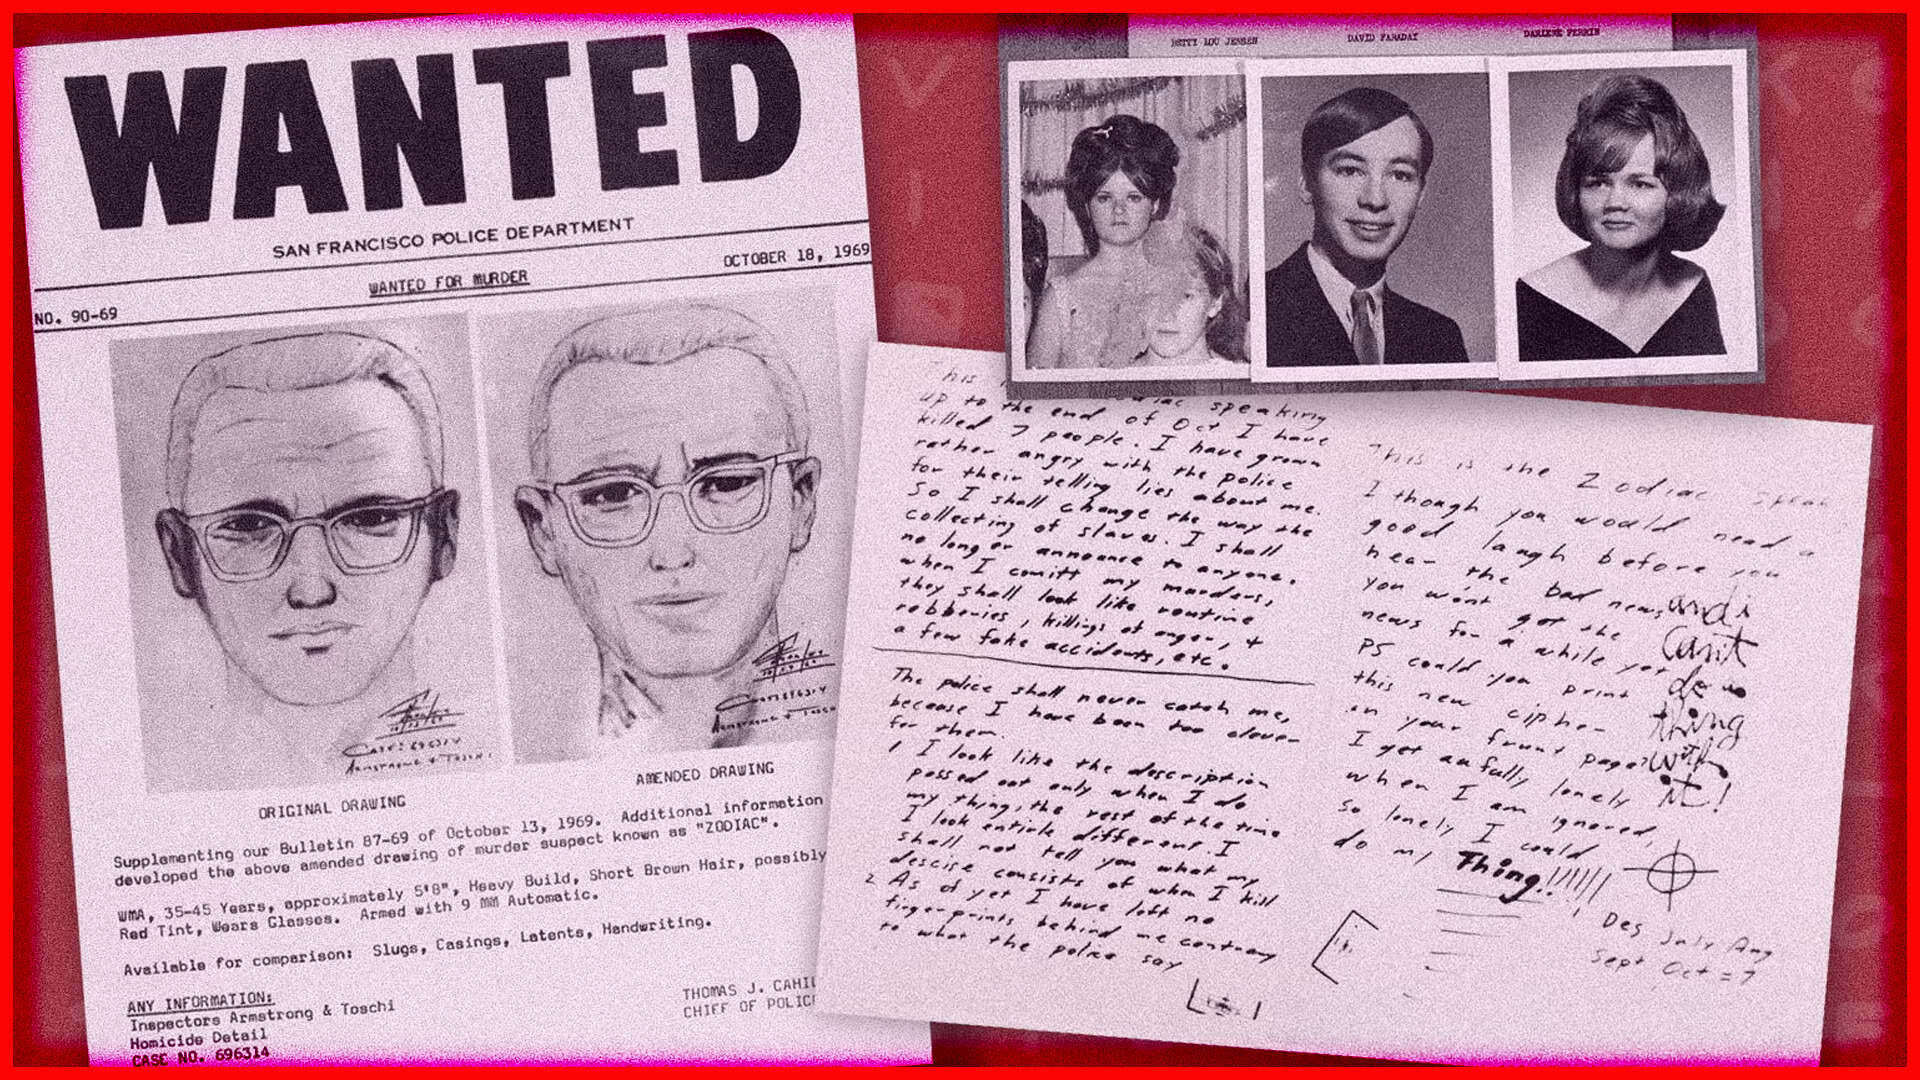 WANTED
SAN FRANCISCO POLICE DEPARTMENT
NO. 90-69
WANTED FOR MURDER
OCTOBER 18, 1969
ORIGINAL DRAWING
AMENDED DRAWING
Supplementing our Bulletin 87-69 of October 13, 1969. Additional information
developed the above amended drawing of murder suspect known as "ZODIAC".
WMA, 35-45 Years, approximately 5'8", Heavy Build, Short Brown Hair, possibly
Red Tint, Wears Glasses. Armed with 9 MM Automatic.
Available for comparison: Slugs, Casings, Latents, Handwriting.
ANY INFORMATION:
Inspectors Armstrong & Toschi
Homicide Detail
CASE NO. 696314
THOMAS J. CAHIL
CHIEF OF POLIC
BETTY LOU JENSEN
DAVID FARADAY
DARLENE FERRIN
This speaking
up to the end of Oct I have
killed 7 people. I have grown
rather angry with the police
for their telling lies about me.
So I shall change the way the
collecting of slaves. I shall
no longer announce to anyone.
when I comitt my murders,
they shall look like routine
robberies, killings of anger, +
a few fake accidents, etc.
The police shall never catch me,
because I have been too clever
for them.
1 I look like the description
passed out only when I do
my thing, the rest of the time
I look entirle different. I
shall not tell you what my
descise consists of when I kill
2 As of yet I have left no
fingerprints behind me contrary
to what the police say
This is the Zodiac speak
I though you would need a
good laugh before you
hear the bad news
you won't get the
news for a while yet
PS could you print
this new cipher
on your frunt page?
I get awfully lonely
when I am ignored,
so lonely I could
do my Thing!!!!!!
and i
cant
do a
thing
with
it!
Des July Aug
Sept Oct = 7